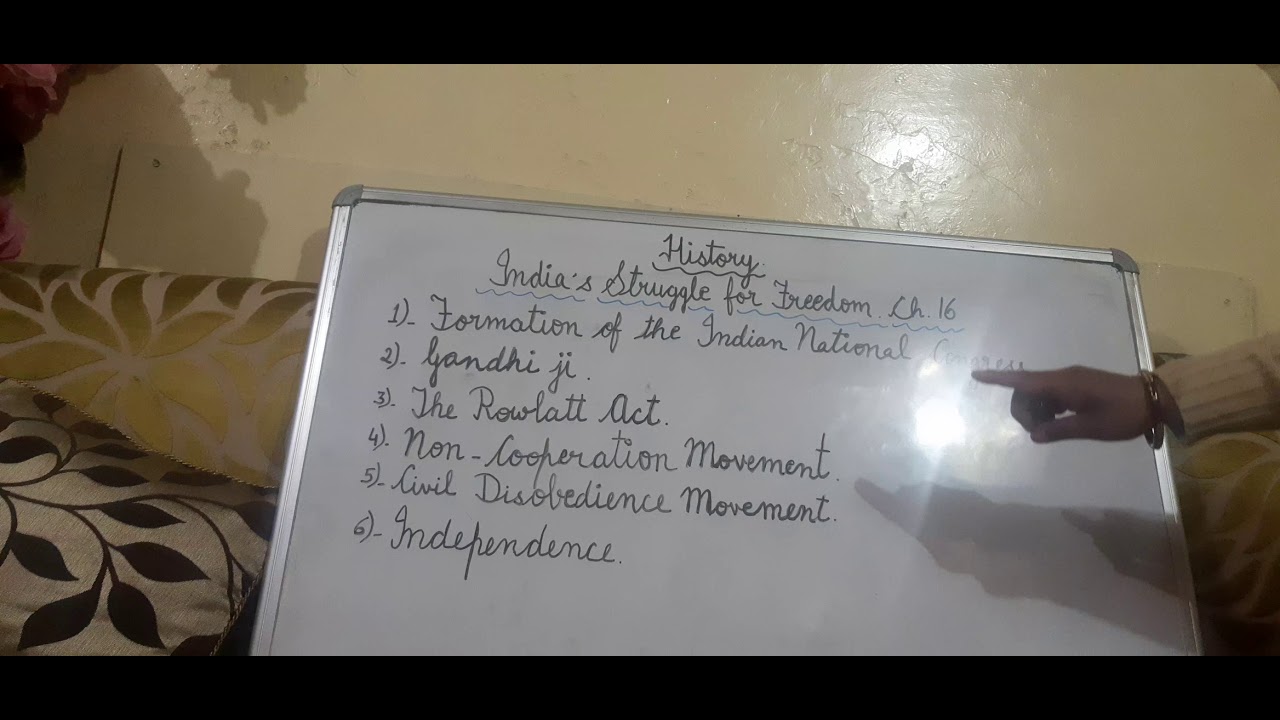 History.
India's Struggle for Freedom. Ch. 16
1)- Formation of the Indian National Congress
2)- Gandhi ji.
3)- The Rowlatt Act.
4)- Non-Cooperation Movement.
5)- Civil Disobedience Movement.
6)- Independence.